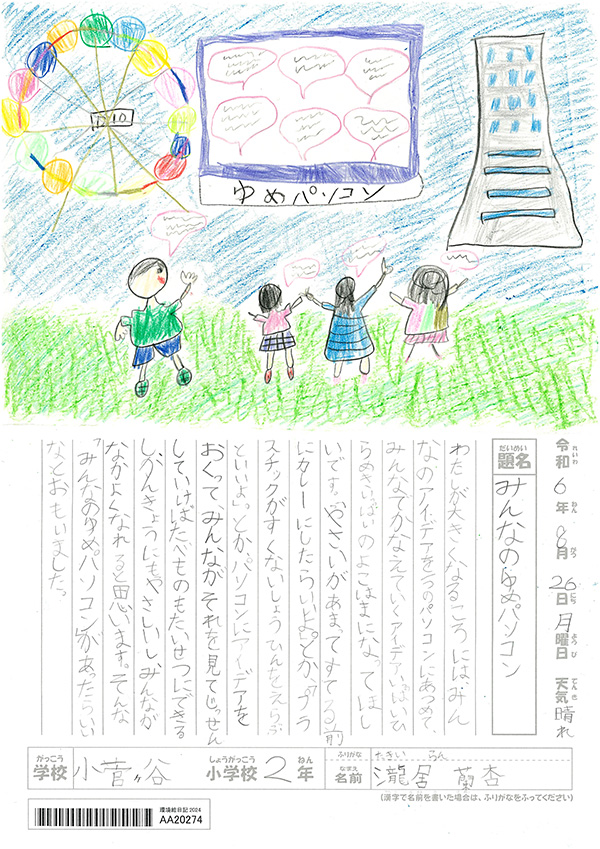 ゆめパソコン
令和6年8月26日月曜日 天気晴れ
題名 みんなのゆめパソコン
わたしが大きくなるころには、みん
なのアイデアを一つのパソコンにあつめて
みんなでかなえていくアイデアいっぱい、ひ
らめきいっぱいのよこはまになってほし
いです。やさいがあまってすてる前
にカレーにしたらいいよ。とか、プラ
スチックがすくないしょうひんをえらぶ
といいよ。とか、パソコンにアイデアを
おくって、みんながそれを見てじっせん
していけば、たべものもたいせつにできる
し、かんきょうにもやさしいし、みんなが
なかよくなれると思います。そんな
「みんなのゆめパソコン」があったらいい
なとおもいました。
学校 小菅ヶ谷 小学校 2年
名前 瀧居 蘭杏
(漢字で名前を書いた場合は、ふりがなをふってください)
環境絵日記2024
AA20274